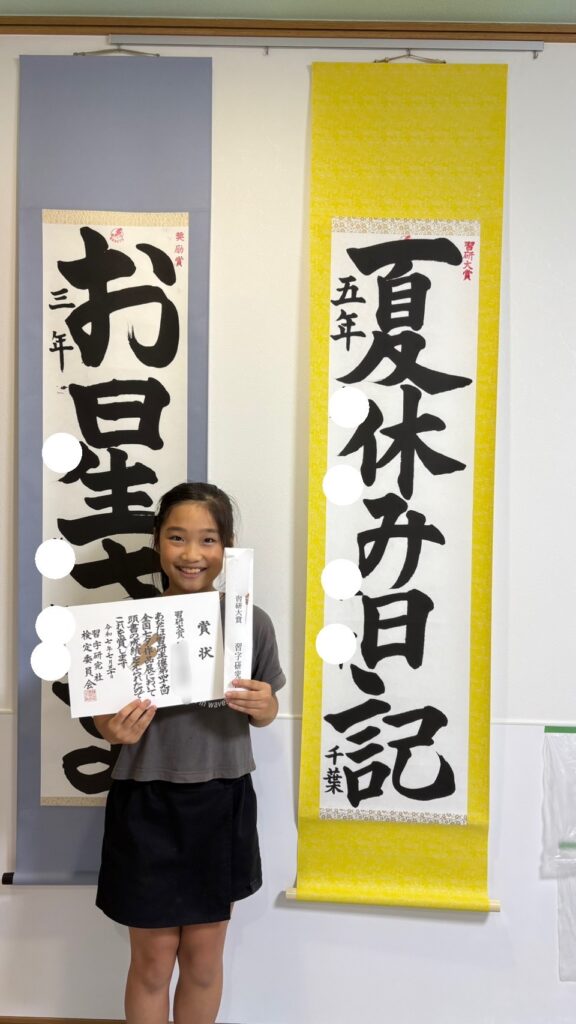 習研大賞
夏休み日記
五年
千葉
奨励賞
お星さ
三年
習研大賞
習字研究
賞状
習研大賞
あなたは習研主催第四十回
全国七夕作品展において
頭書の成績を られたので
これを賞します
令和七年七月 日
習字研究社
検定委員会
wave